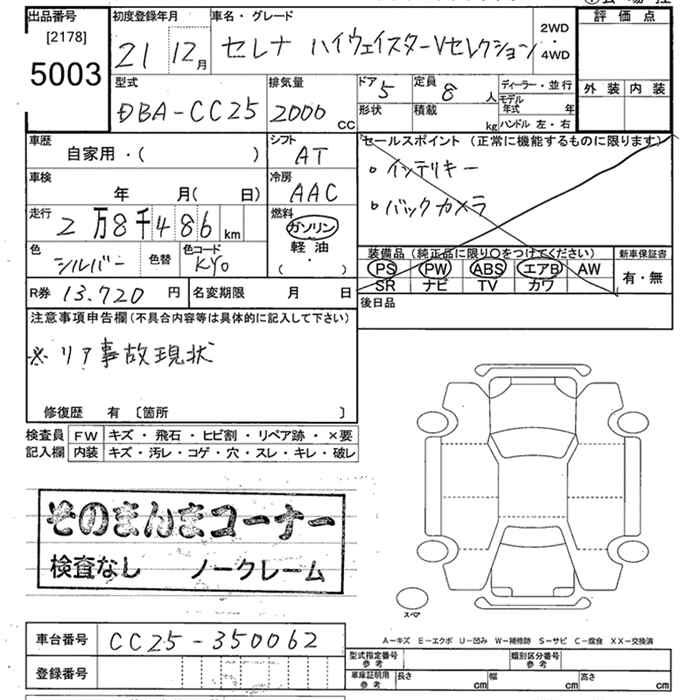 出品番号 初度登録年月 車名・グレード 評価点
[2178] 21 12月 セレナ ハイウェイスターVセレクション 2WD・4WD
5003
型式 排気量 ドア 5 定員 8人 ディーラー・並行 外装 内装
DBA-CC25 2000 CC 形状 積載 kg モデル年式 年
ハンドル 左・右
車歴 自家用・( ) シフト AT セールスポイント(正常に機能するものに限ります)
車検 年 月( 日) 冷房 AAC ・インテリキー
走行 2万8千486km 燃料 ガソリン 軽油 ( ・ ) ・バックカメラ
色 シルバー 色替 色コード KY0
装備品(純正品に限り○をつけてください) 新車保証書
PS PW ABS エアB AW 有・無
SR ナビ TV カワ
R券 13.720円 名変期限 月 日 後日品
注意事項申告欄(不具合内容等は具体的に記入して下さい)
※リア事故現状
修復歴 有 〔箇所 〕
検査員 FW キズ・飛石・ヒビ割・リペア跡・×要
記入欄 内装 キズ・汚レ・コゲ・穴・スレ・キレ・破レ
そのまんまコーナー
検査なし ノークレーム
スペア
A-キズ E-エクボ U-凹み W-補修跡 S-サビ C-腐食 XX-交換済
車台番号 CC25-350062
型式指定番号 参考 類別区分番号 参考
登録番号
車庫証明用 参考 長さ cm 幅 cm 高さ cm